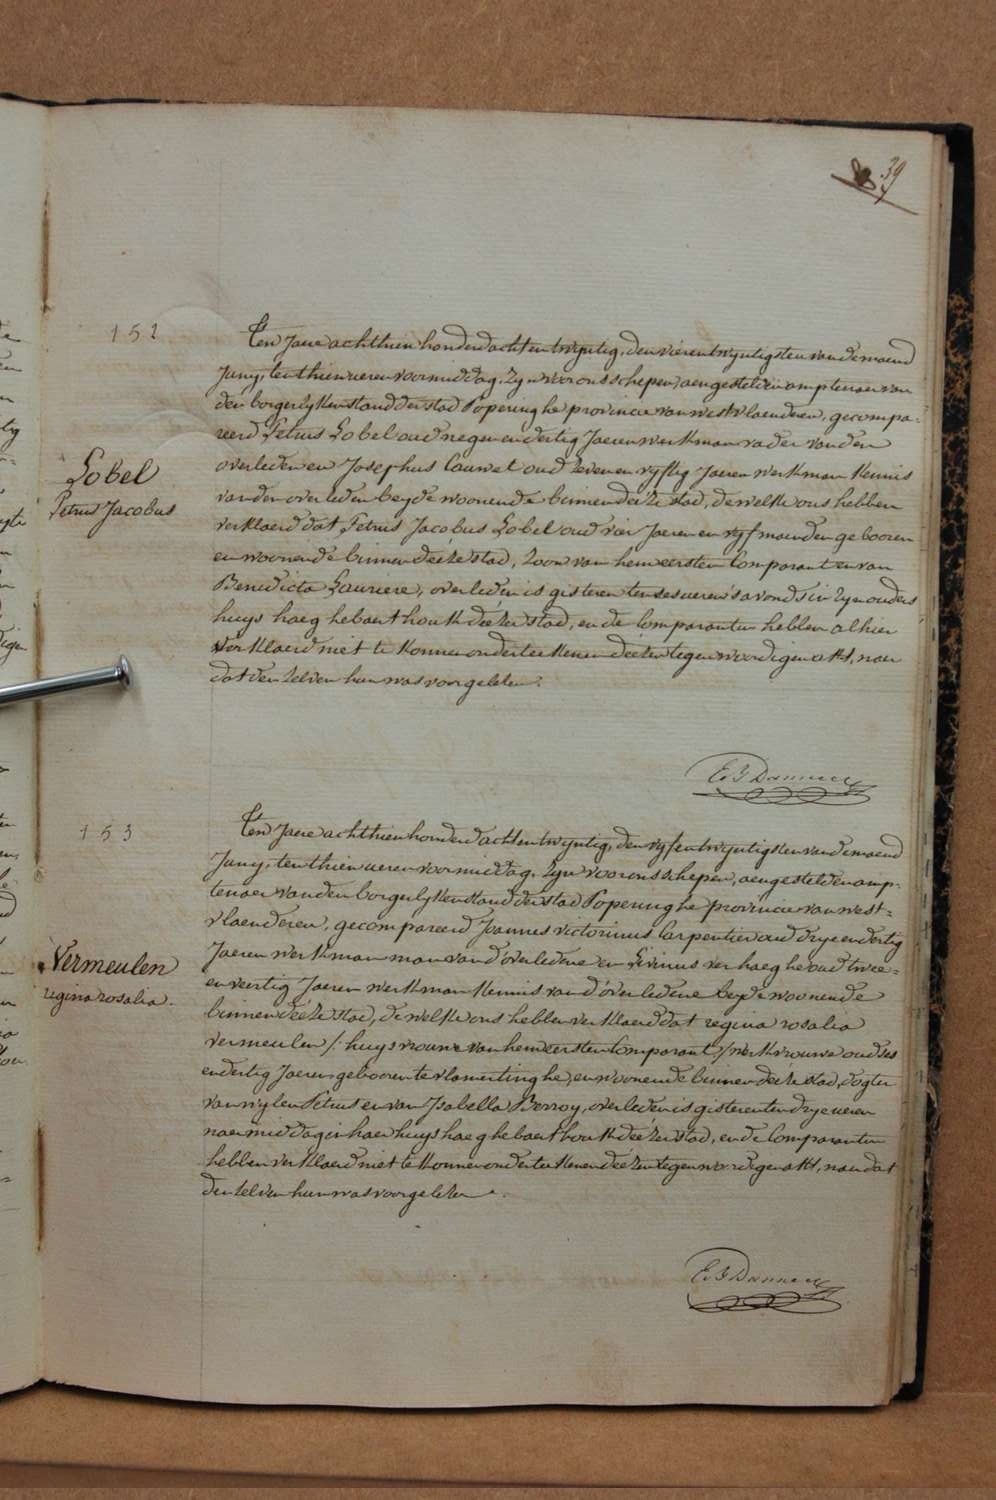 39
152
Lobel
Petrus Jacobus
Ten Jaere achthien honderd acht en twyntig, den vier en twyntigsten van de maend
Juny, ten thien ueren voormiddag, zyn voor ons schepen, aengestelden amptenaer van
den borgerlyken stand der stad Poperinghe provincie van westvlaenderen, gecompa-
reerd Petrus Lobel oud negen en dertig Jaeren werkman vader van den
overleden en Josephus Cauwel oud zeven en vyftig Jaeren werkman kennis
van den overleden beyde woonende binnen deéze stad, de welke ons hebben
verklaerd dat Petrus Jacobus Lobel oud vier Jaeren en vyf maenden gebooren
en woonende binnen deéze stad, zoon van hem eersten Comparant en van
Benedicta Lauriere, overleden is gisteren ten ses ueren s'avonds in zyn ouders
huys haeghebaerthouk deézer stad, en de Comparanten hebben alhier
verklaerd niet te konnen onderteekenen deézen tegenwoordigen akt, naer
dat den zelven hun was voorgelezen.
153
Vermeulen
regina rosalia.
Ten Jaere achthien honderd acht en twyntig, den vyf en twyntigsten van de maend
Juny, ten thien ueren voormiddag, zyn voor ons schepen, aengestelden amp-
tenaer van den borgerlyken stand der stad Poperinghe provincie van west-
vlaenderen, gecompareerd Joannes victorinus Carpentier oud drye en dertig
Jaeren werkman man van d'overledene en Livinus verhaeghe oud twee-
en veertig Jaeren werkman kennis van d'overledene beyde woonende
binnen deéze stad, de welke ons hebben verklaerd dat regina rosalia
vermeulen /: huysvrouwe van hem eersten Comparant :/ werkvrouwe oud ses
en dertig Jaeren gebooren te vlamertinghe, en woonende binnen deéze stad, dogter
van wylen Petrus en van Isabella Berroy, overleden is gisteren ten drye ueren
naermiddag in haer huys haeghebaerthouk deézer stad, en de Comparanten
hebben verklaerd niet te konnen onderteekenen deézen tegenwoordigen akt, naer dat
den zelven hun was voorgelezen.